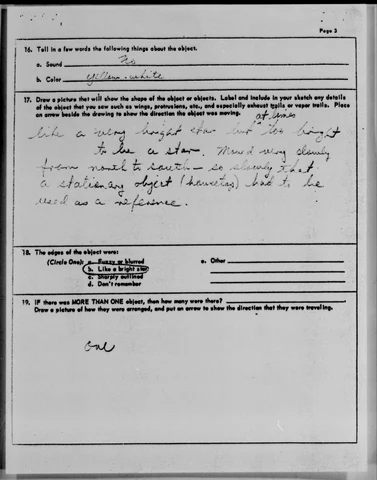 Page 3
16. Tell in a few words the following things about the object.
a. Sound No
b. Color yellow-white
17. Draw a picture that will show the shape of the object or objects. Label and include in your sketch any details
of the object that you saw such as wings, protrusions, etc., and especially exhaust trails or vapor trails. Place
an arrow beside the drawing to show the direction the object was moving.
at times
like a very bright star but too bright
to be a star. Moved very slowly
from north to south - so slowly that
a stationary object (housetop) had to be
used as a reference.
18. The edges of the object were:
(Circle One): a. Fuzzy or blurred e. Other
b. Like a bright star
c. Sharply outlined
d. Don't remember
19. IF there was MORE THAN ONE object, then how many were there?
Draw a picture of how they were arranged, and put an arrow to show the direction that they were traveling.
one